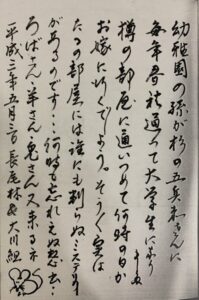 幼稚園の孫が杉の五兵衛さんに
毎年音祓通って大学生になり
樽の部屋に通いつめて何時の日か
お嫁に行くでしょう。そうそう実は
たるの部屋には誰にも判らぬミステリー
があるのです…何時も忘れえぬ想い出…
ろばさん、羊さん、兎さん又来るネ
平成三年五月三日 長尾林 大川